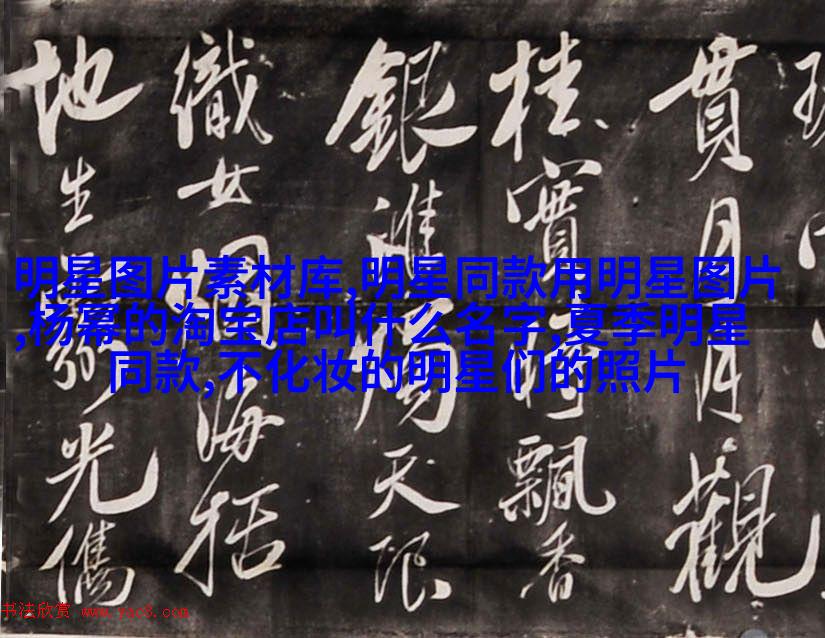 貫月月觀
桂實飄香
銀天限
織女海括
地生光
明星图片素材库,明星同款用明星图片
,杨幂的淘宝店叫什么名字,夏季明星
同款,不化妆的明星们的照片
书法欣赏 www.yac8.com